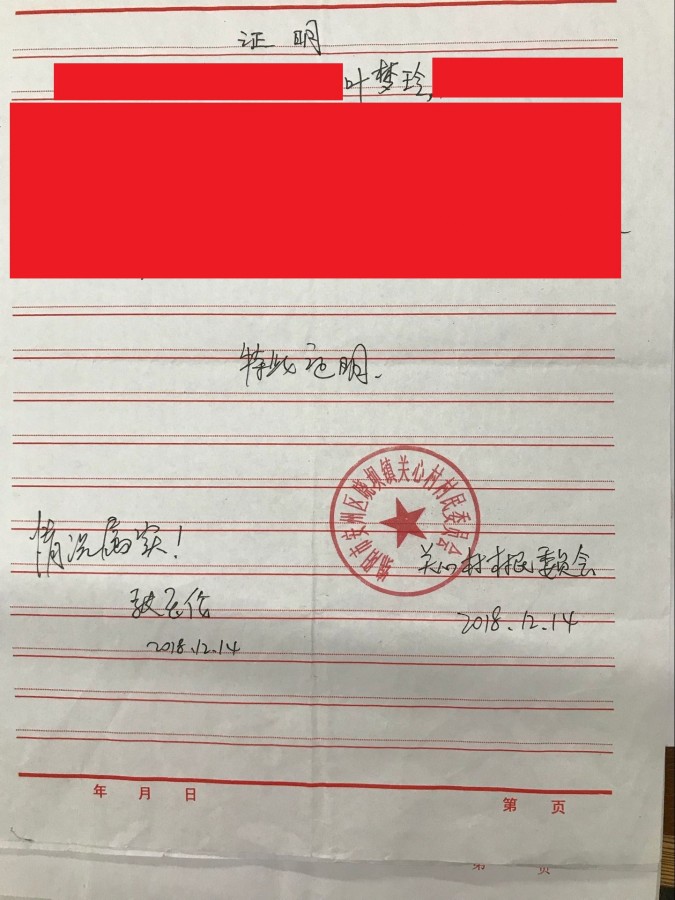 证明
叶梦玲,
特此证明.
绵阳市安州区晓坝镇关心村村民委员会
情况属实!
2018.12.14
关心村村民委员会
2018.12.14
年 月 日
第 页
第 页